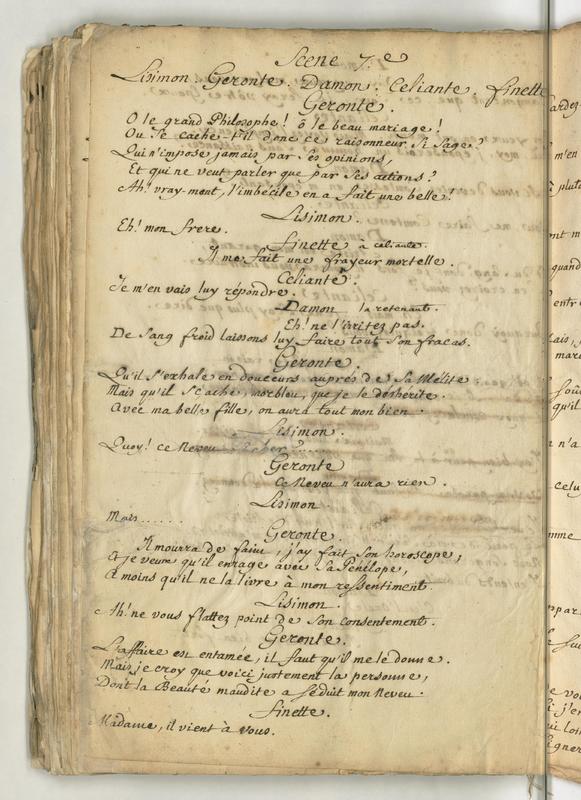 Scene 7.e
Lisimon. Geronte. Damon. Celiante. finette
Geronte.
O le grand Philosophe! ô le beau mariage!
Ou se cache t'il donc ce raisonneur si sage?
Qui n'impose jamais par ses opinions,
Et qui ne veut parler que par ses actions?
Ah! vray-ment, l'imbécile en a fait une belle!
Lisimon.
Eh! mon frere.
finette à celiante.
Il me fait une frayeur mortelle.
Celiante.
Je m'en vais luy répondre.
Damon la retenant.
Eh! ne l'irritez pas.
De sang froid laissons luy faire tout son fracas.
Geronte.
Qu'il s'exhale en douceurs auprés de sa Mélite;
Mais qu'il sçache, morbleu, que je le desherite.
Avec ma belle fille, on aura tout mon bien.
Lisimon.
Quoy! ce Neveu
Geronte
Ce Neveu n'aura rien.
Lisimon
Mais......
Geronte.
Il mourra de faim, j'ay fait son horoscope;
Et je veux qu'il enrage avec sa Pénélope,
A moins qu'il ne la livre à mon ressentiment.
Lisimon.
Ah! ne vous flattez point de son consentement.
Geronte.
L'affaire est entamée, il faut qu'il me le donne.
Mais je croy que voici justement la personne,
Dont la Beauté maudite a séduit mon Neveu.
finette.
Madame, il vient à vous.